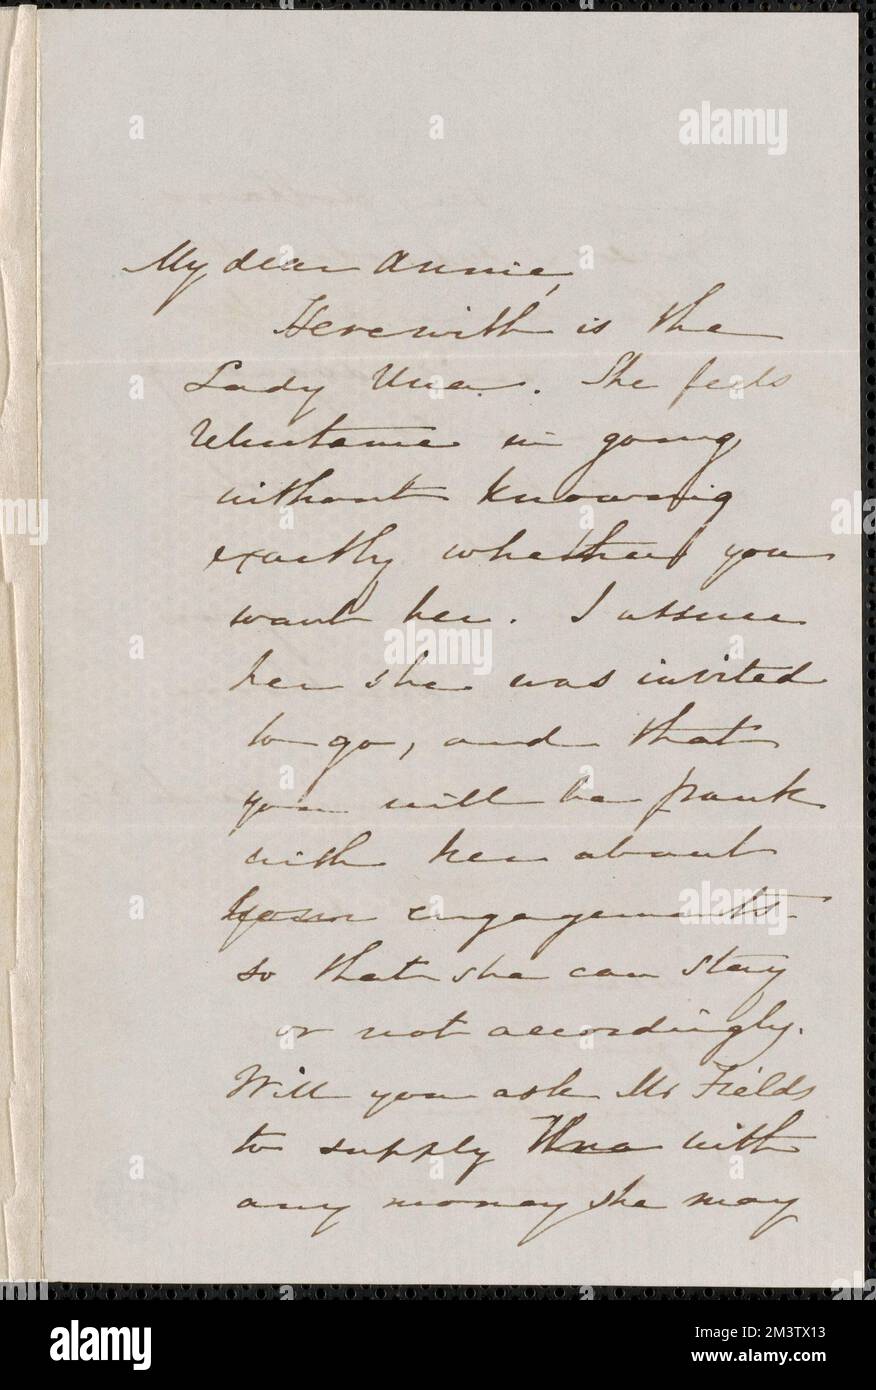 My dear Annie,
Herewith is the
Lady Una. She feels
reluctance in going
without knowing
exactly whether you
want her. I assure
her she was invited
to go, and that
you will be frank
with her about
your engagements
so that she can stay
or not accordingly.
Will you ask Mr Fields
to supply Una with
any money she may
alamy
alamy
Image ID: 2M3TX13
www.alamy.com